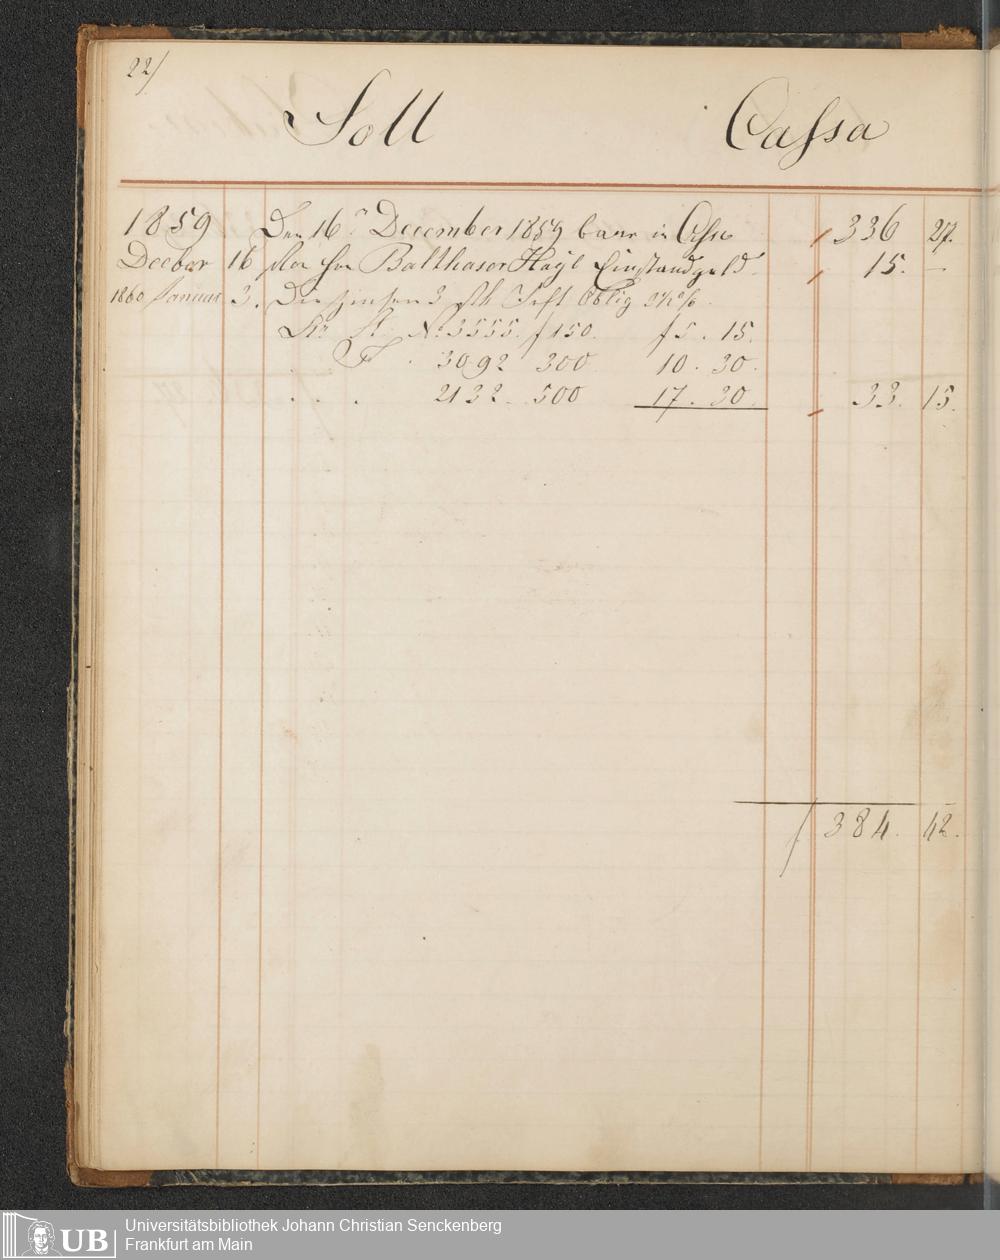 22/
Soll Cassa
1859 Den 16n December 1859 baar in Cassa 336 27.
Decber 16 Von Hrn Balthasar Hayl Einstandgeld 15. –
1860 Januar 3. Die Zinsen 3 Stk Frft Oblig 3½%
Lit. A. No 3555. f 150. f 5. 15.
3092 300 10. 30.
. . . 2132 500 17. 30. 33. 15.
f 384. 42.
Universitätsbibliothek Johann Christian Senckenberg
Frankfurt am Main
UB